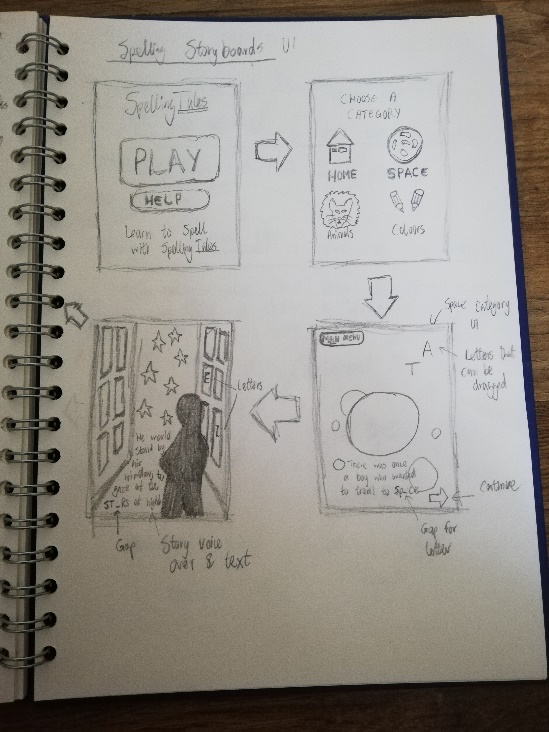 Spelling Storyboards UI
Spelling Tales
PLAY
HELP
Learn to Spell
with Spelling Tales
CHOOSE A
CATEGORY
HOME
SPACE
Animals
Colours
Space Category
UI
MAIN MENU
A
T
Letters that
can be
dragged
There was once
a boy who wanted
to travel to Sp_ce
Continue
Gap for
letter
Letters
E
L
He would
Stand by
his
window to
gaze at the
ST_RS at night
Gap
Story voice
over & text